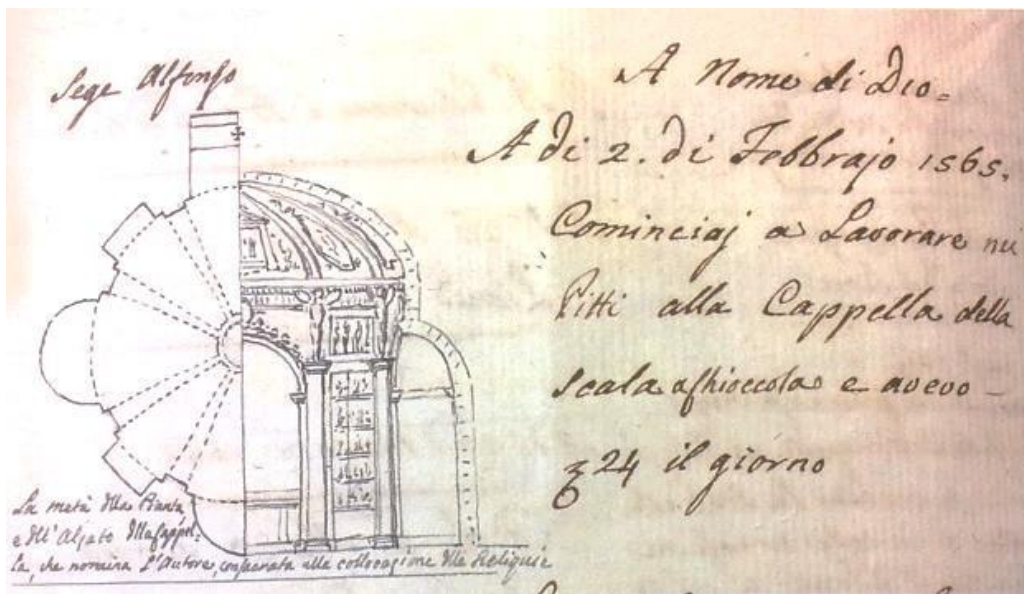 Sege Alfonso
A Nome di Dio=
A di 2. di Febbrajo 1565.
Cominciaj a Lavorare ne
Pitti alla Cappella della
scala a chioccola e avevo –
24 il giorno
La metà della Pianta
e dell'Alzato della Cappel=
la, che nomina l'Autore, consacrata alla collocazione delle Reliquie